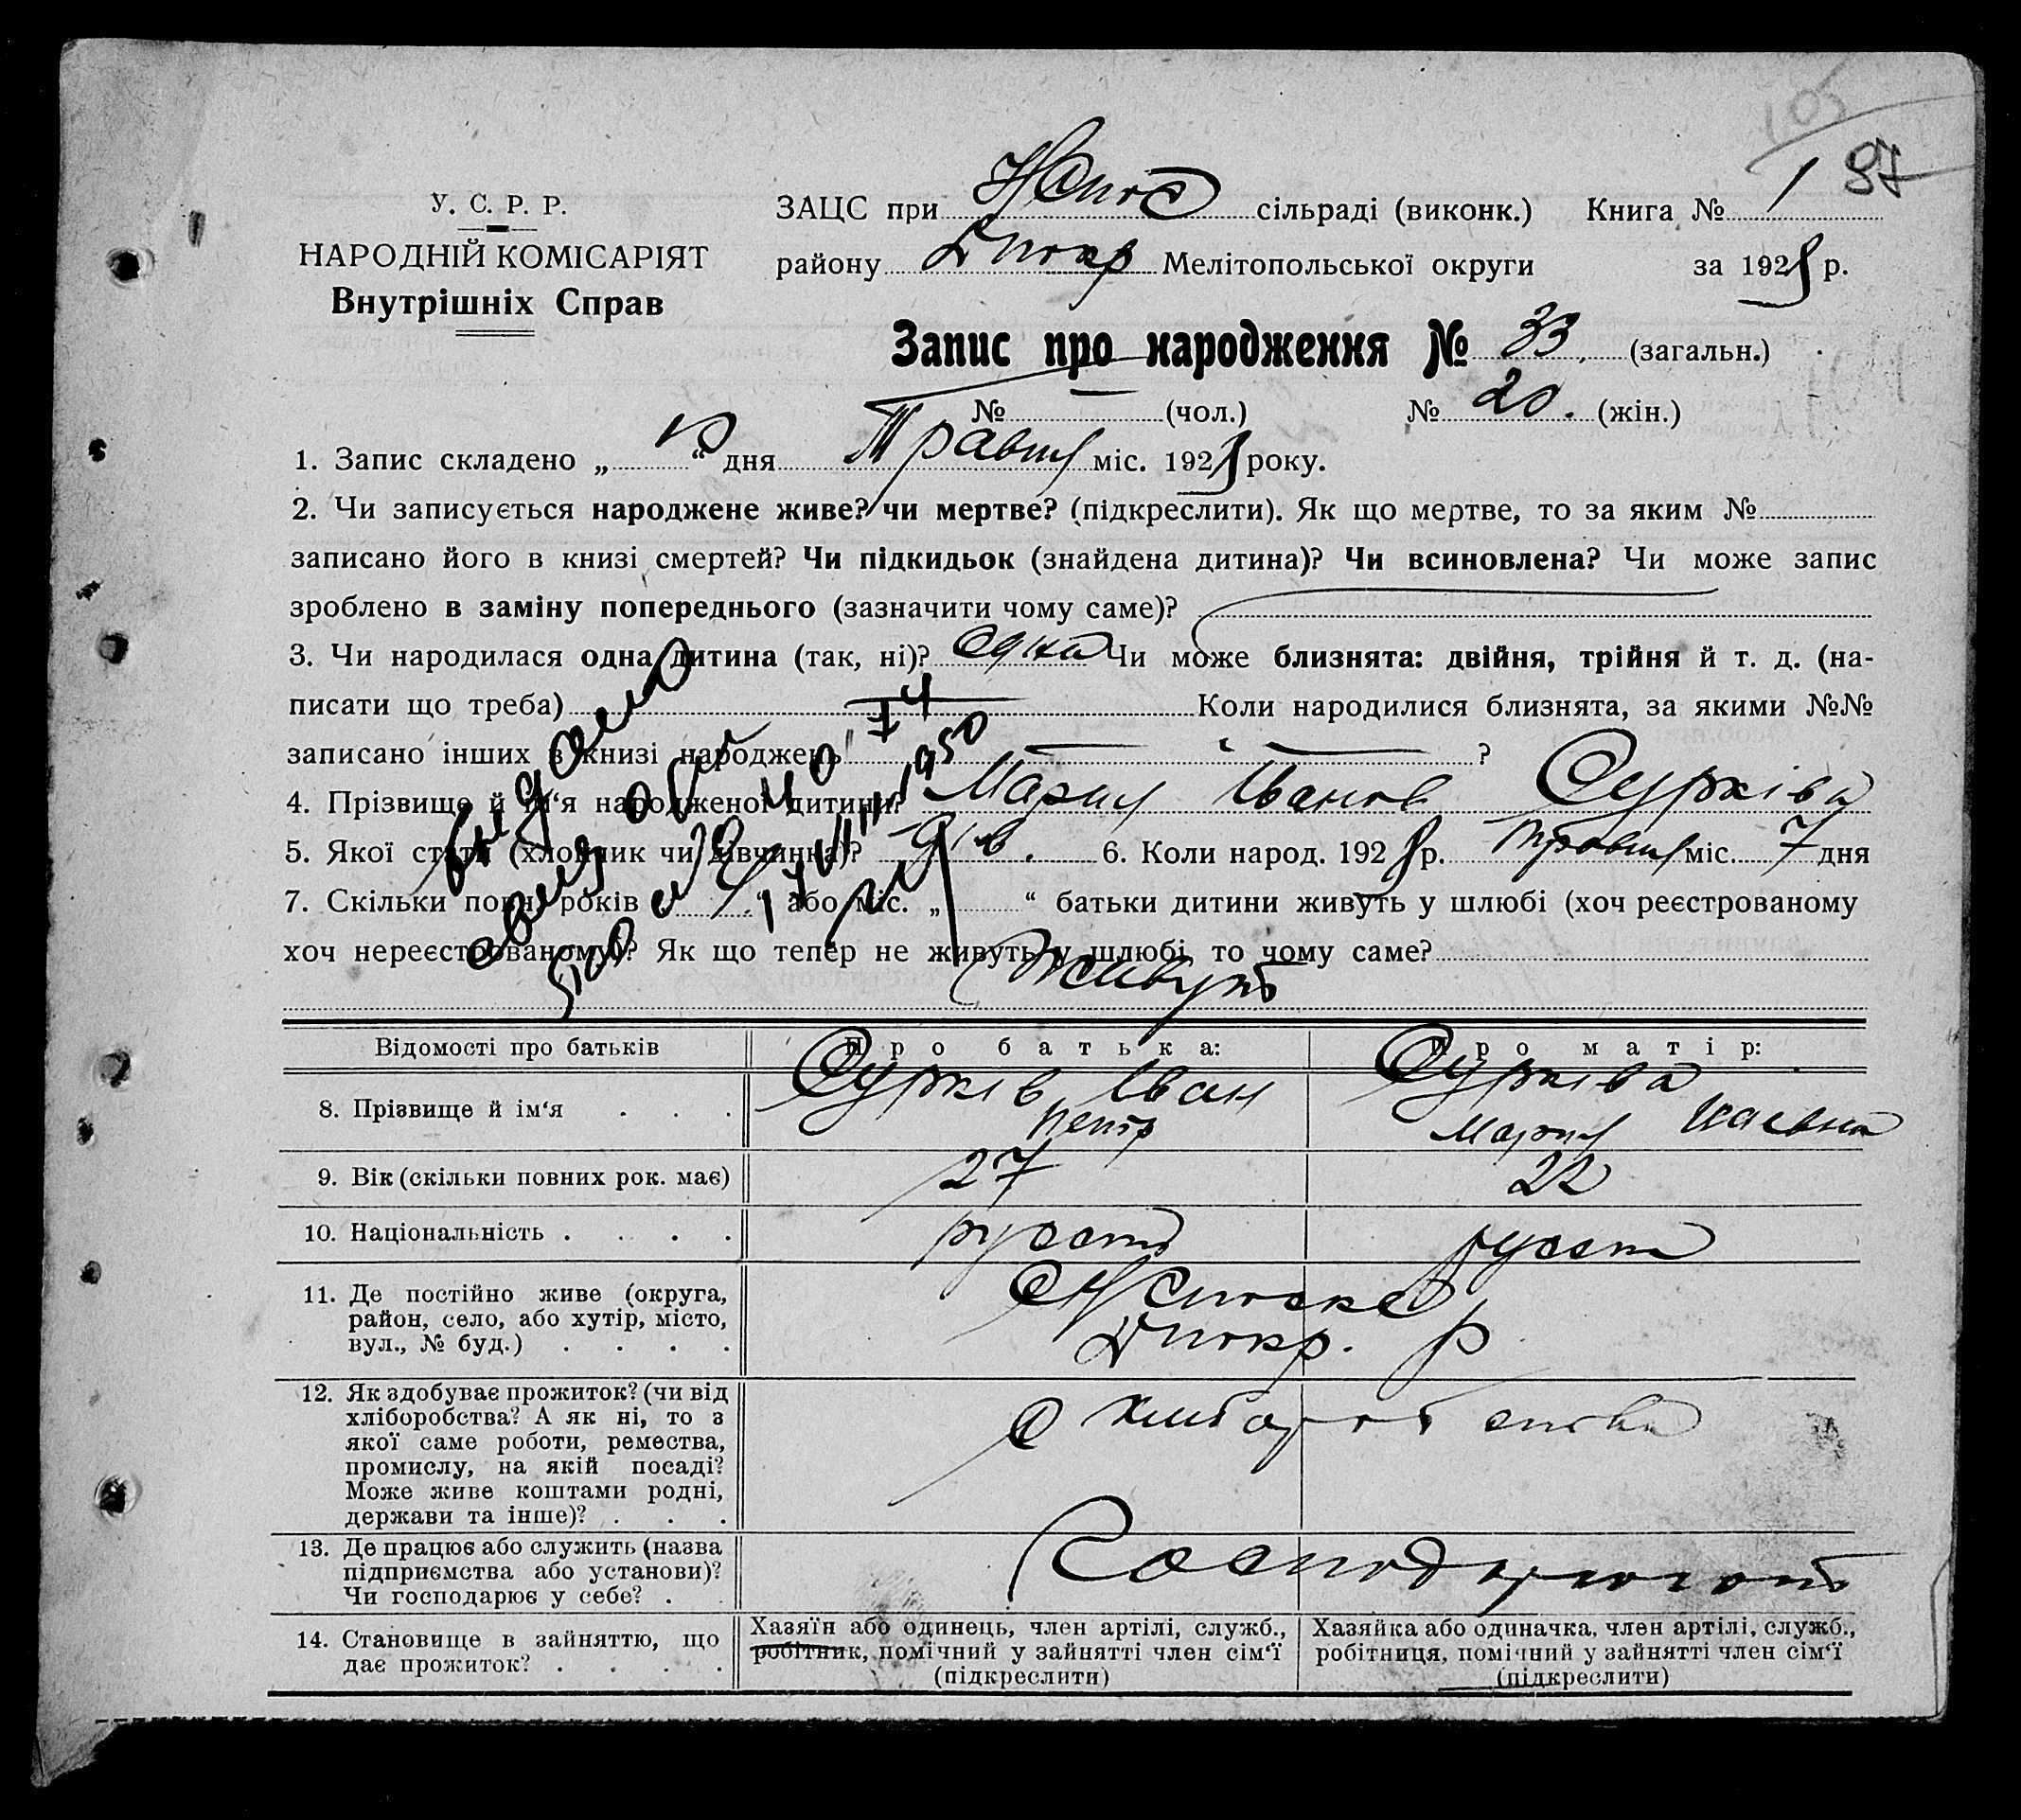 105
97
У. С. Р. Р.
НАРОДНІЙ КОМІСАРІЯТ
Внутрішніх Справ
ЗАЦС при сільраді (виконк.) Книга № 1
району Мелітопольської округи за 192 р.
Запис про народження № 33. (загальн.)
№ (чол.) № 20. (жін.)
1. Запис складено „ “ дня Травня міс. 192 року.
2. Чи записується народжене живе? чи мертве? (підкреслити). Як що мертве, то за яким №
записано його в книзі смертей? Чи підкидьок (знайдена дитина)? Чи всиновлена? Чи може запис
зроблено в заміну попереднього (зазначити чому саме)?
3. Чи народилася одна дитина (так, ні)? одна Чи може близнята: двійня, трійня й т. д. (на-
писати що треба) Коли народилися близнята, за якими №№
записано інших в книзі народжень ?
4. Прізвище й ім‘я народженої дитини? Мария Іванов Сурківа
5. Якої статі (хлопчик чи дівчинка)? дів. 6. Коли народ. 192 р. Травня міс. 7 дня
7. Скільки повн. років „ “ або міс. „ “ батьки дитини живуть у шлюбі (хоч реєстрованому
хоч нереєстрованому)? Як що тепер не живуть у шлюбі, то чому саме?
Живуть
Відомості про батьків Про батька: Про матір:
8. Прізвище й ім‘я . . . Сурків Іван Петр Сурківа Мария Исаевна
9. Вік (скільки повних рок. має) 27 22
10. Національність . . . .
11. Де постійно живе (округа,
район, село, або хутір, місто,
вул., № буд.) . . . .
12. Як здобуває прожиток? (чи від
хліборобства? А як ні, то з
якої саме роботи, ремества,
промислу, на якій посаді?
Може живе коштами родні,
держави та інше)? . . .
13. Де працює або служить (назва
підприємства або установи)?
Чи господарює у себе? .
14. Становище в зайняттю, що
дає прожиток? . . . .
Хазяїн або одинець, член артілі, служб.,
робітник, помічний у зайнятті член сім‘ї
(підкреслити)
Хазяйка або одиначка, член артілі, служб.,
робітниця, помічний у зайнятті член сім‘ї
(підкреслити)